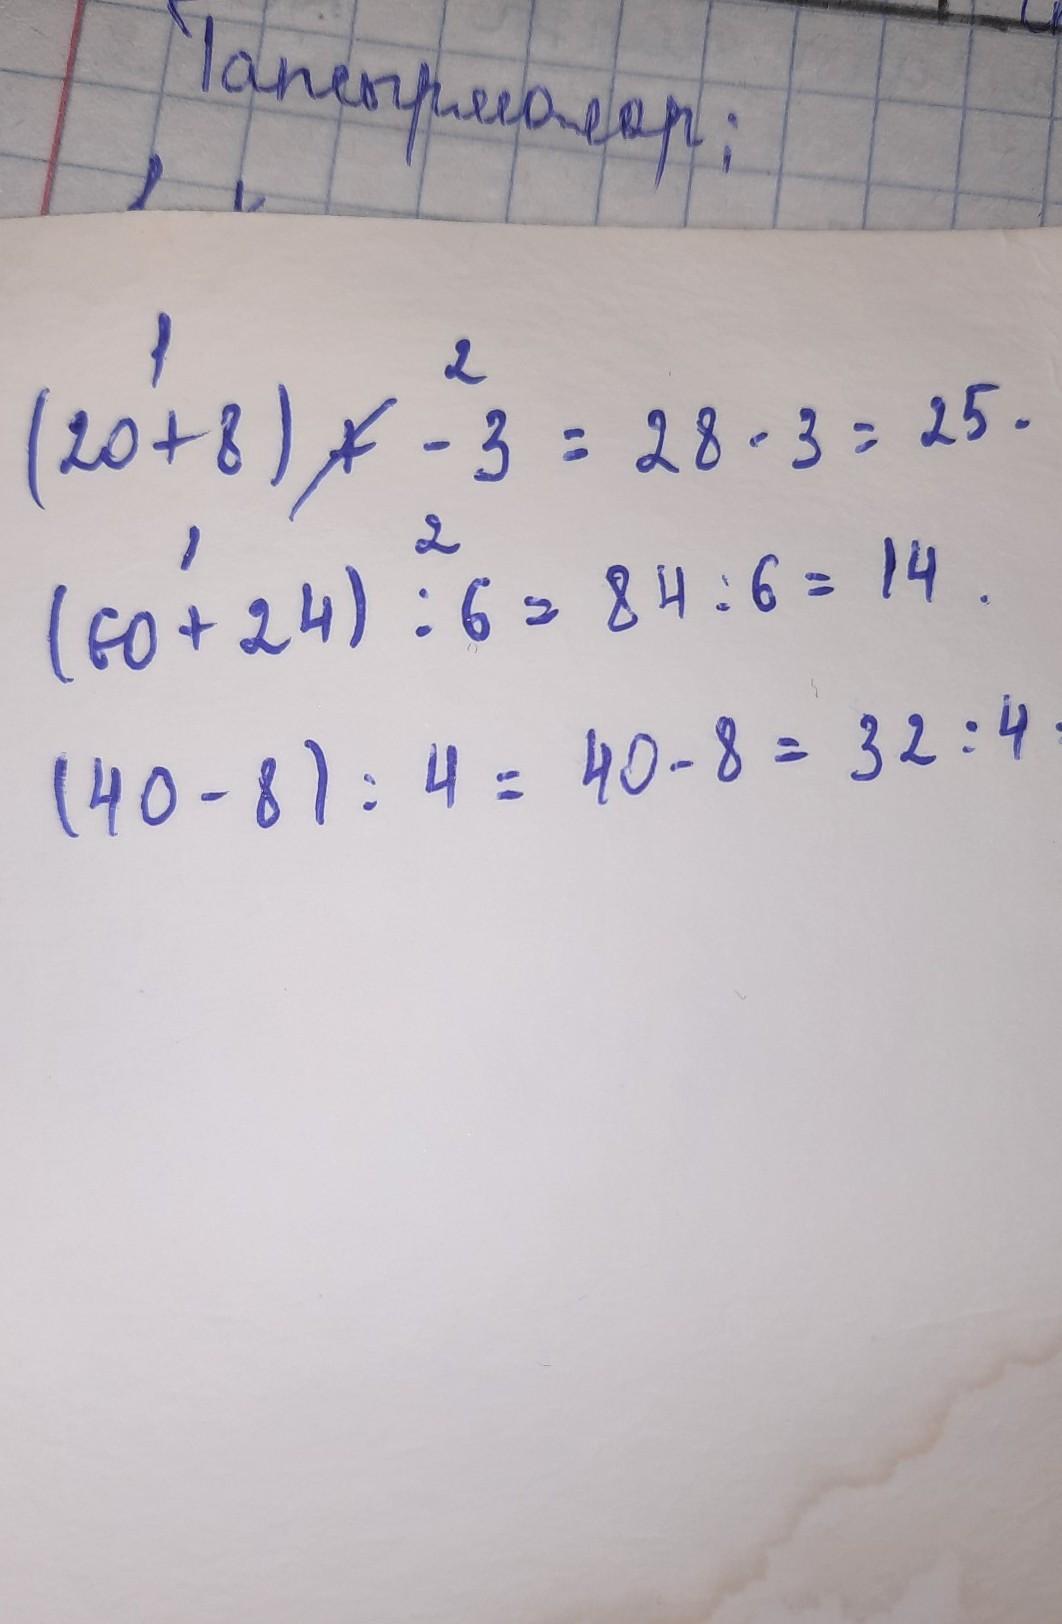 Тапсырмалар;
1 2
(20+8) - 3 = 28 - 3 = 25.
1 2
(60+24) : 6 = 84 : 6 = 14.
(40-8) : 4 = 40-8 = 32 : 4